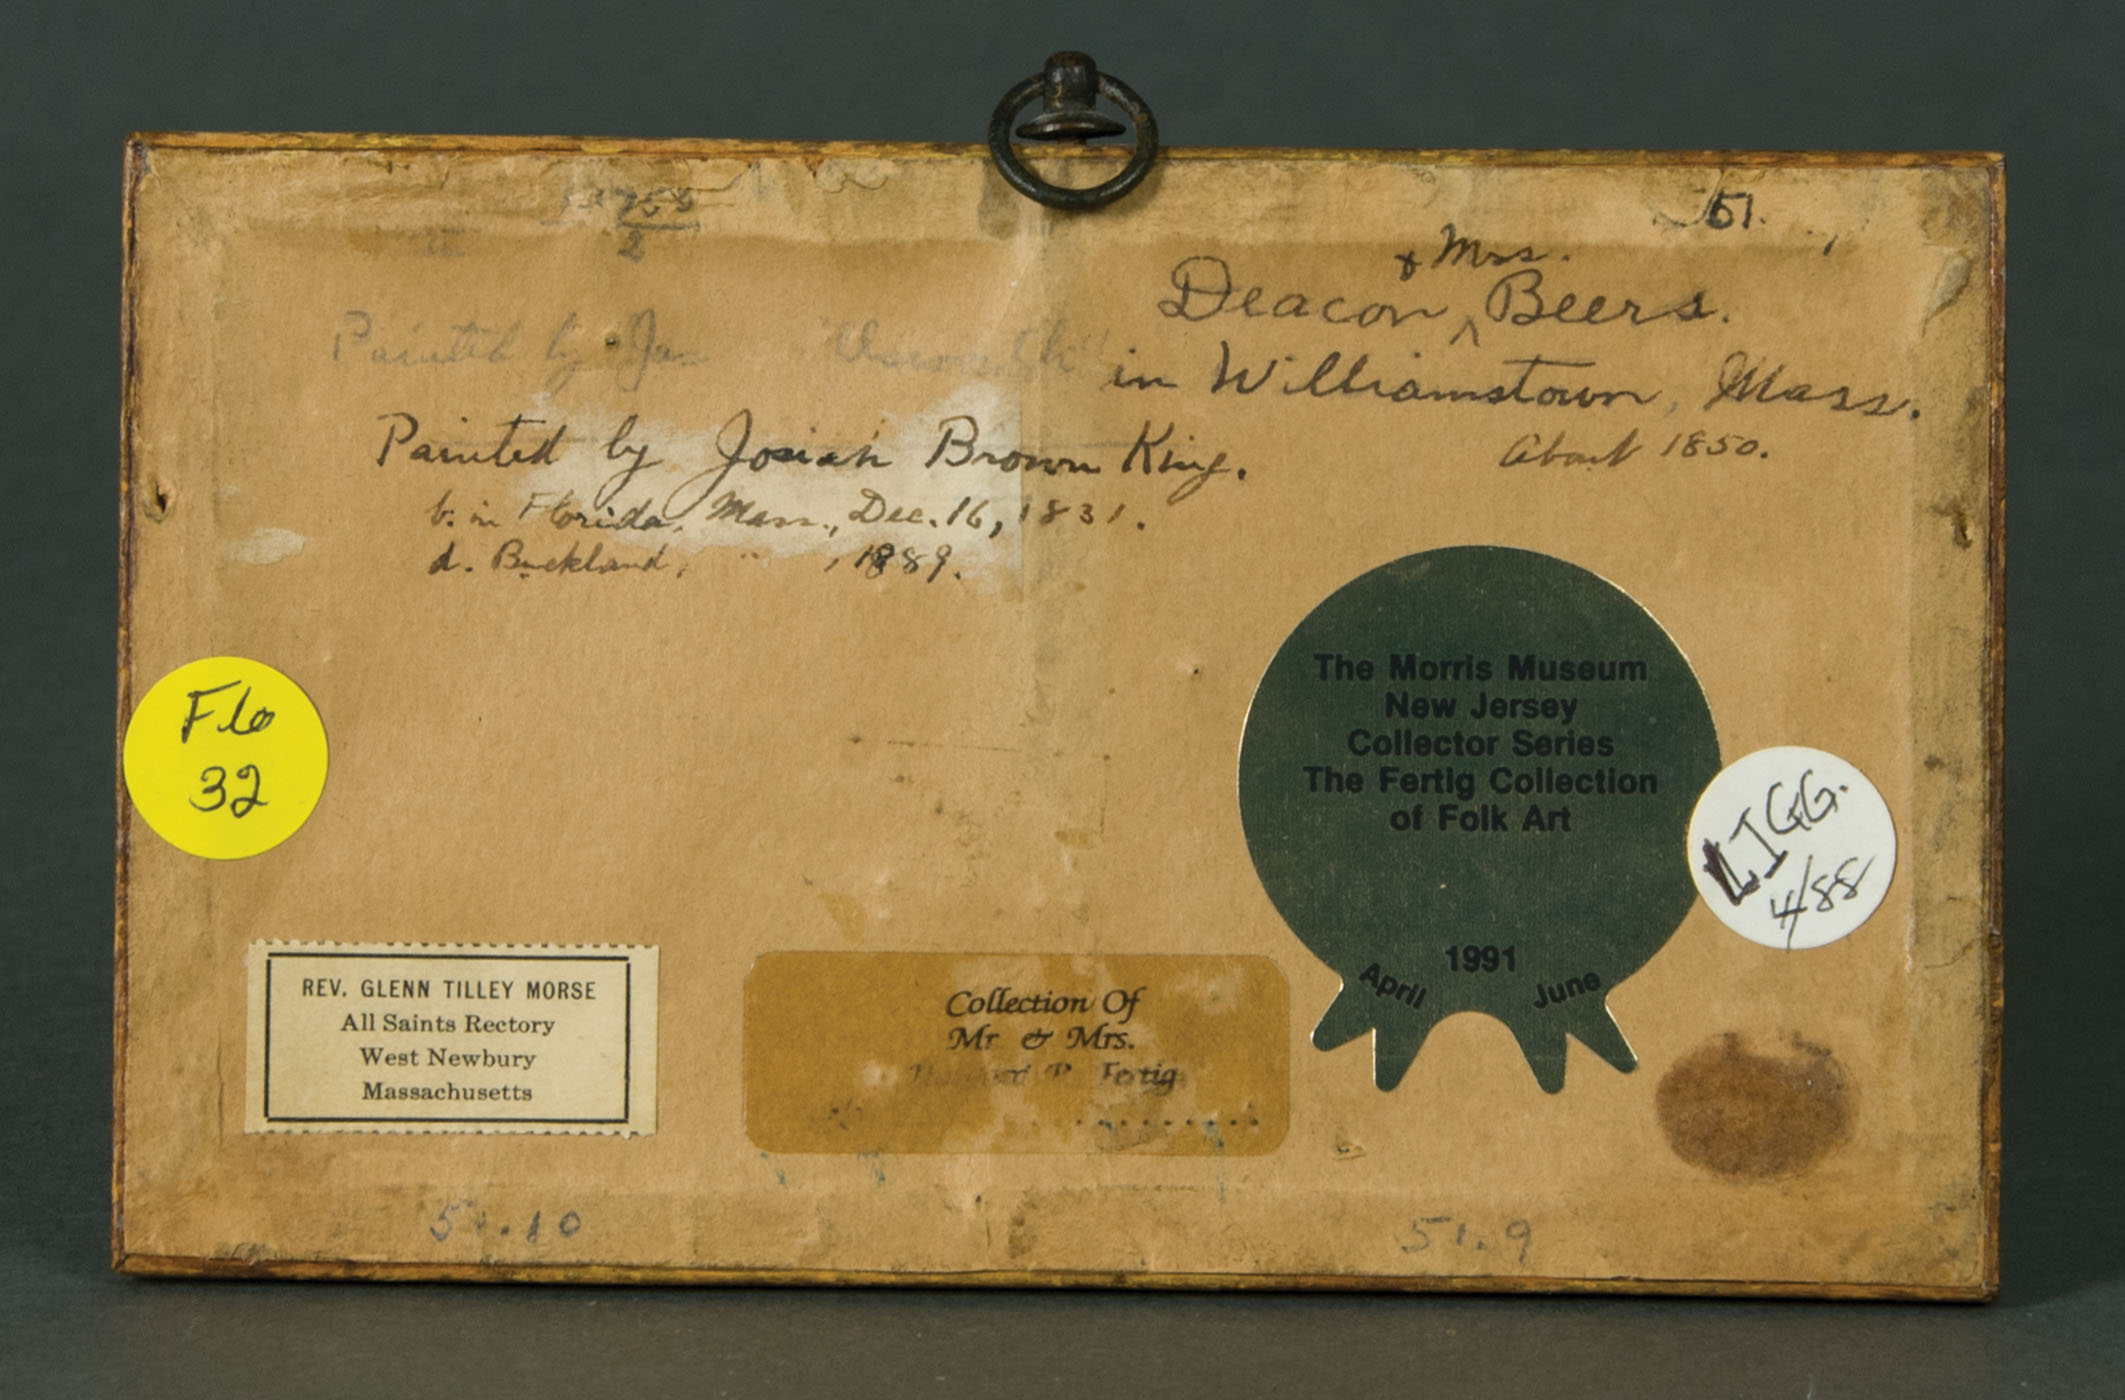 51.
& Mrs.
Deacon ^ Beers.
in Williamstown, Mass.
About 1850.
Painted by
Painted by Josiah Brown King.
b. in Florida, Mass., Dec. 16, 1831.
d. Buckland, " , 1889.
The Morris Museum
New Jersey
Collector Series
The Fertig Collection
of Folk Art
1991
April June
Flo
32
LIGG.
4/88
REV. GLENN TILLEY MORSE
All Saints Rectory
West Newbury
Massachusetts
Collection Of
Mr & Mrs.
Fertig
51.10
51.9